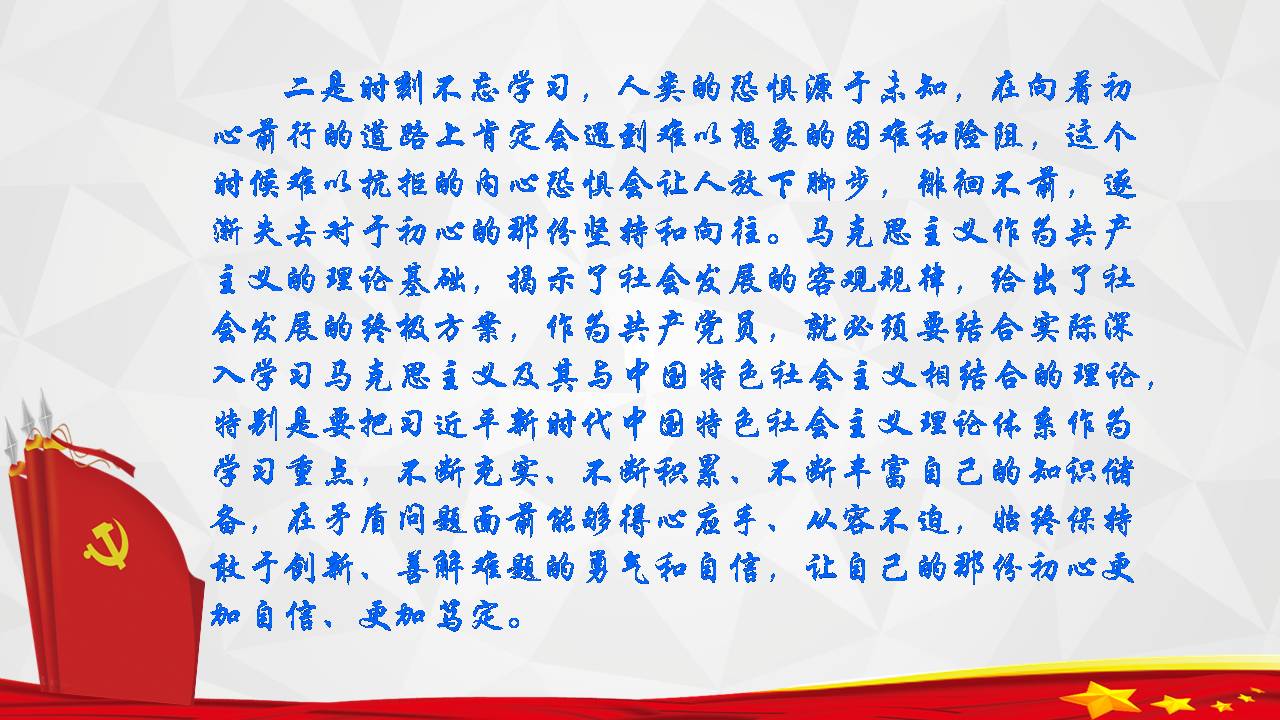 二是时刻不忘学习，人类的恐惧源于未知，在向着初
心前行的道路上肯定会遇到难以想象的困难和险阻，这个
时候难以抗拒的内心恐惧会让人放下脚步，徘徊不前，逐
渐失去对于初心的那份坚持和向往。马克思主义作为共产
主义的理论基础，揭示了社会发展的客观规律，给出了社
会发展的终极方案，作为共产党员，就必须要结合实际深
入学习马克思主义及其与中国特色社会主义相结合的理论，
特别是要把习近平新时代中国特色社会主义理论体系作为
学习重点，不断充实、不断积累、不断丰富自己的知识储
备，在矛盾问题面前能够得心应手、从容不迫，始终保持
敢于创新、善解难题的勇气和自信，让自己的那份初心更
加自信、更加笃定。